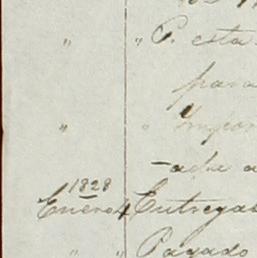 " " P. esta
para
" " Impor
1828
Enero 4 Entregas
" " Pagado